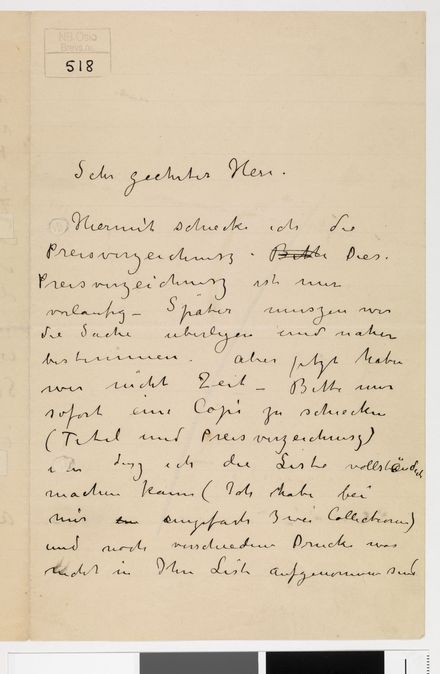 NB. Oslo
Brevs. nr.
518
Sehr geehrter Herr.
Hiermit schicke ich die
Preisverzeichnusg. Bitte Dies.
Preisverzeichnusg ist nur
vorlaufig – Später muszen wir
die Sache uberlegen und naher
bestimmen. aber jetzt habe
wir nicht Zeit – Bitte nur
sofort eine Copi zu schicken
(Titel und Preisverzeichnusg)
dasz ich die Liste vollständich
machen kann (Ich habe bei
mir en ungefähr 3 wei Collectionen)
und noch verschiedene Drucke was
nicht in Ihre Liste aufgenommen sind